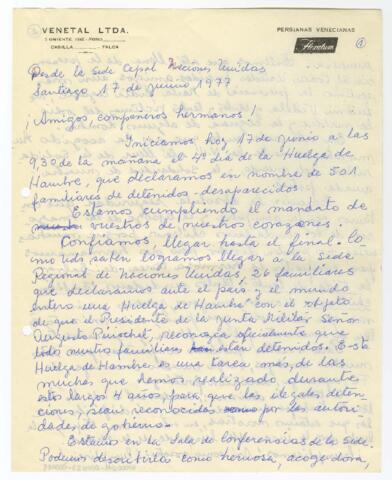 VENETAL LTDA.
PERSIANAS VENECIANAS
CASILLA TALCA
Desde la Sede Cepal Naciones Unidas
Santiago 17 de junio 1977
¡Amigos, compañeros hermanos!
Iniciamos hoy 17 de junio a las
9.30 de la mañana el 4º día de la Huelga de
Hambre, que declaramos en nombre de 501
familiares de detenidos-desaparecidos
Estamos cumpliendo el mandato de
vuestros de nuestros corazones.
Confiamos, llegar hasta el final. Co
mo uds saben logramos llegar a la Sede
Regional de Naciones Unidas, 26 familiares
que declaramos ante el país y el mundo
entero una Huelga de Hambre con el objeto
de que el Presidente de la Junta Militar Señor
Augusto Pinochet, reconozca oficialmente que
todos nuestros familiares están detenidos. Esta
Huelga de Hambre es una tarea más, de las
muchas que hemos realizado durante
estos largos 4 años, para que las ilegales deten-
ciones, sean reconocidas por las autori
dades de gobierno.
Estamos en la Sala de Conferencias de la Sede.
Podemos describirla como hermosa, acogedora,